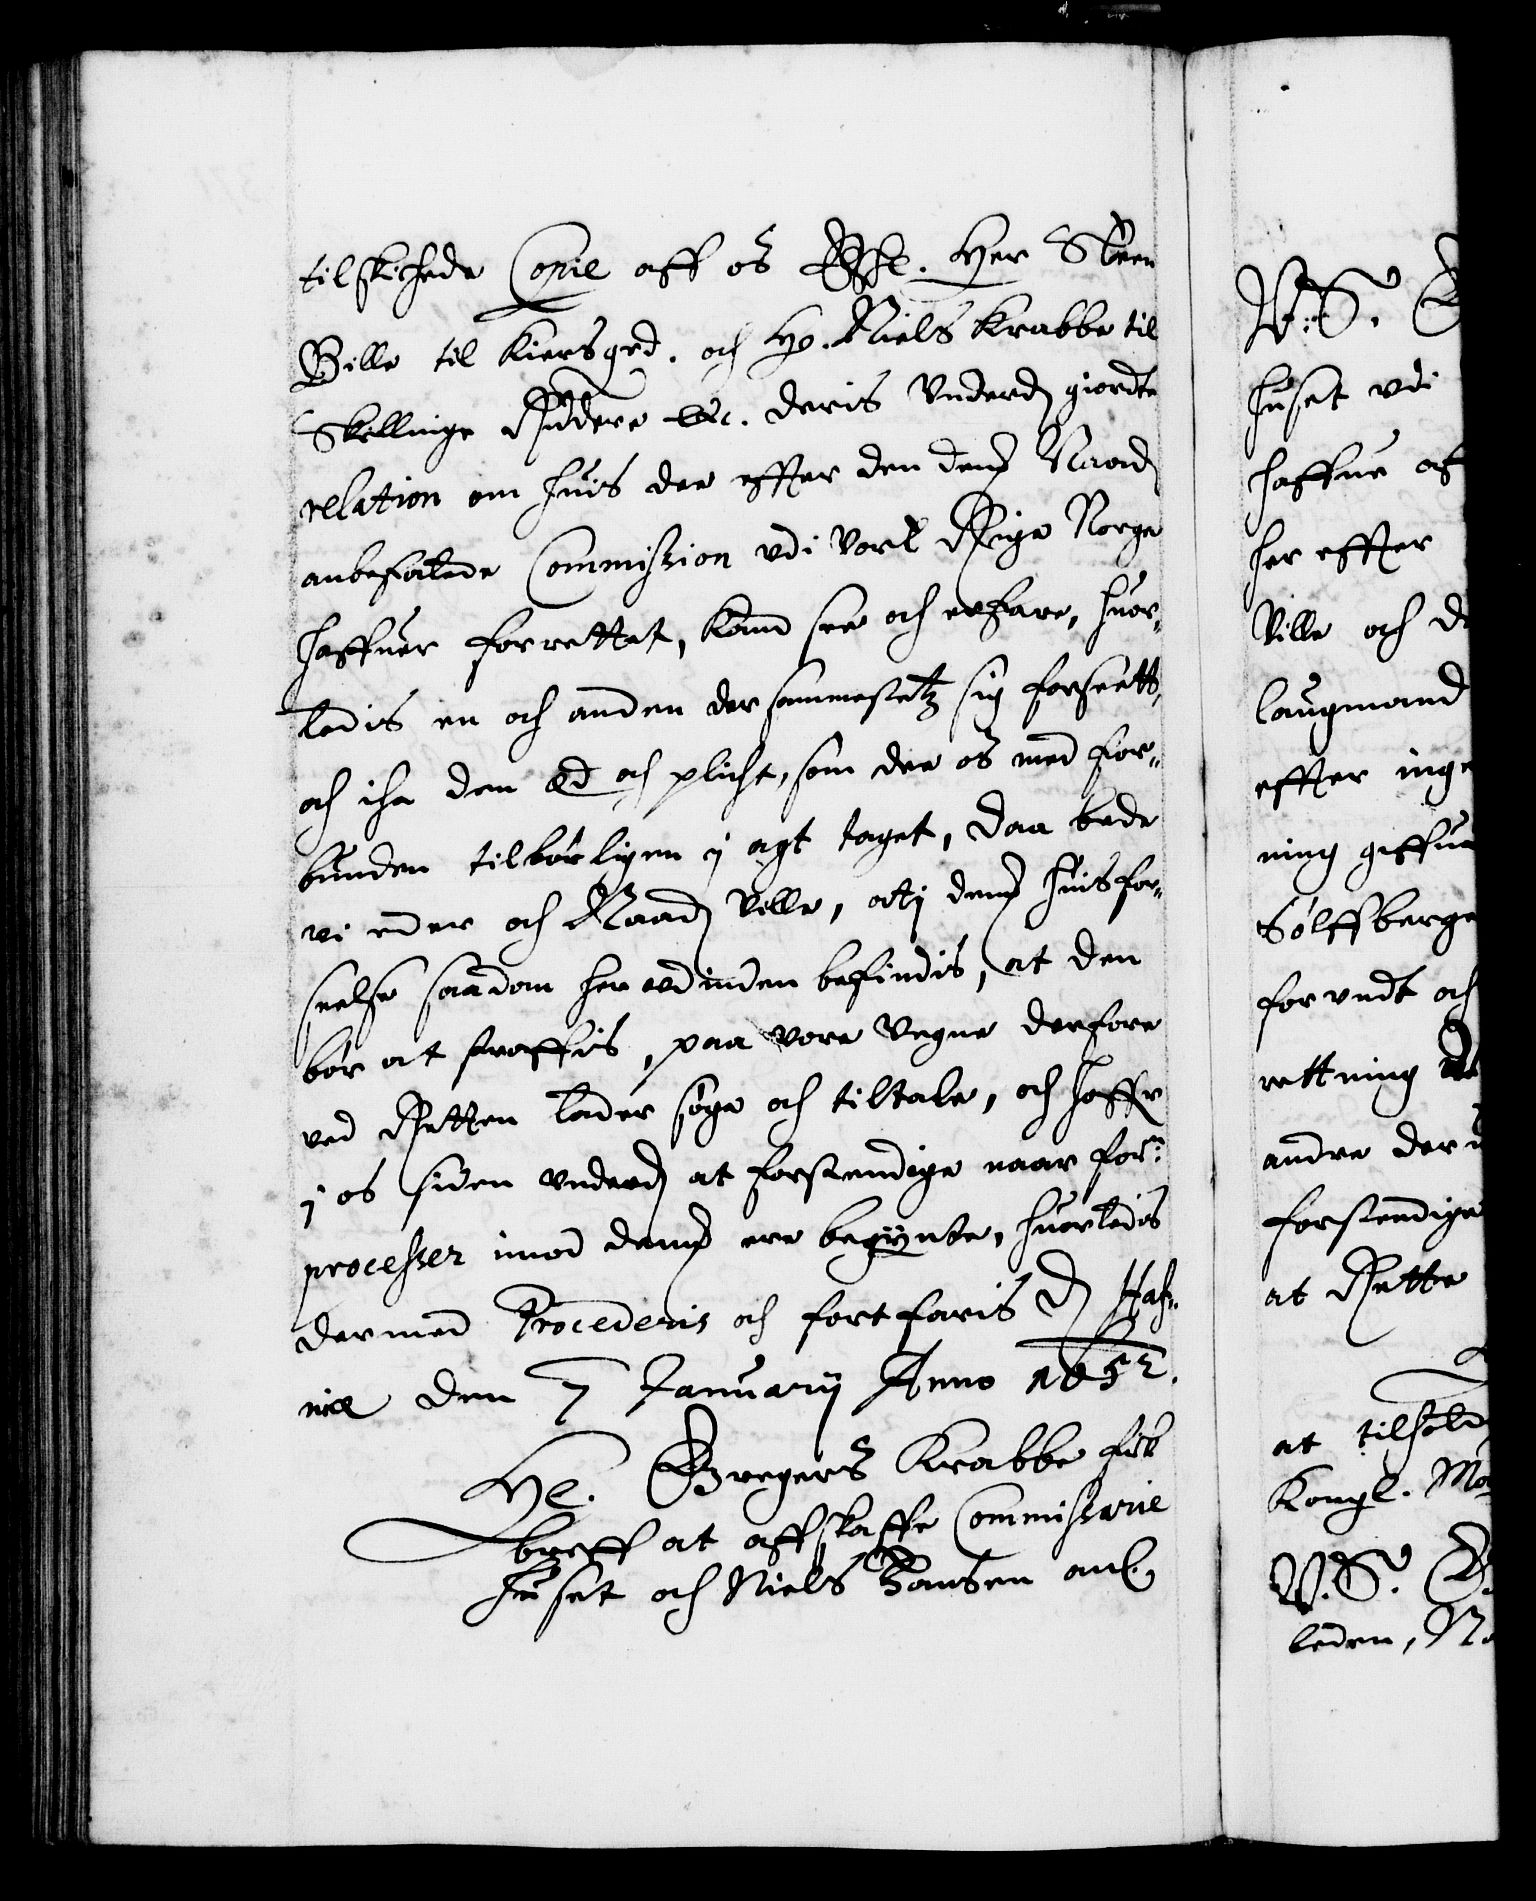 tilskichede Copie aff os Elsk. Her Steen
Bille til Kiersgrd. och Hr. Niels Krabbe til
Skillinge Riddere etc. deris underd giordte
relation om huis dee effter den dennem Naad
anbefalede Commission udi vort Rige Norge
haffuer forrettet, kand see och erfare, huor-
ledis en och anden der sammestetz sig forseett,
och iche den Ed och plicht, som dee os med for-
bunden tilbørligen i agt taget, Daa bede
vi eder och Naad ville, at i dennem huis for-
seelse saadan her udinden befindis, at den
bør at straffis, paa vore vegne derfore
ved Retten lader søge och tiltale, och haffe
i os siden underd at forstendige naar for:ne
processer imod dennem ere begynte, huorledis
dermed Procederis och fortfaris D Haf-
niæ den 7 Januarij Anno 1652.
He. Gregers Krabbe fik
breff at affskaffe Commissarie
huset och Niels Hansen anl.
V. S. G
huset udi
haffue af
her effter
Ville och d
laugmand
effter inge
ning giffue
Sølffberge
forundt och
rettning
andre der u
forstendige
at Rette
at tilhold
Kongl. Ma
V. S. G.
leden, N